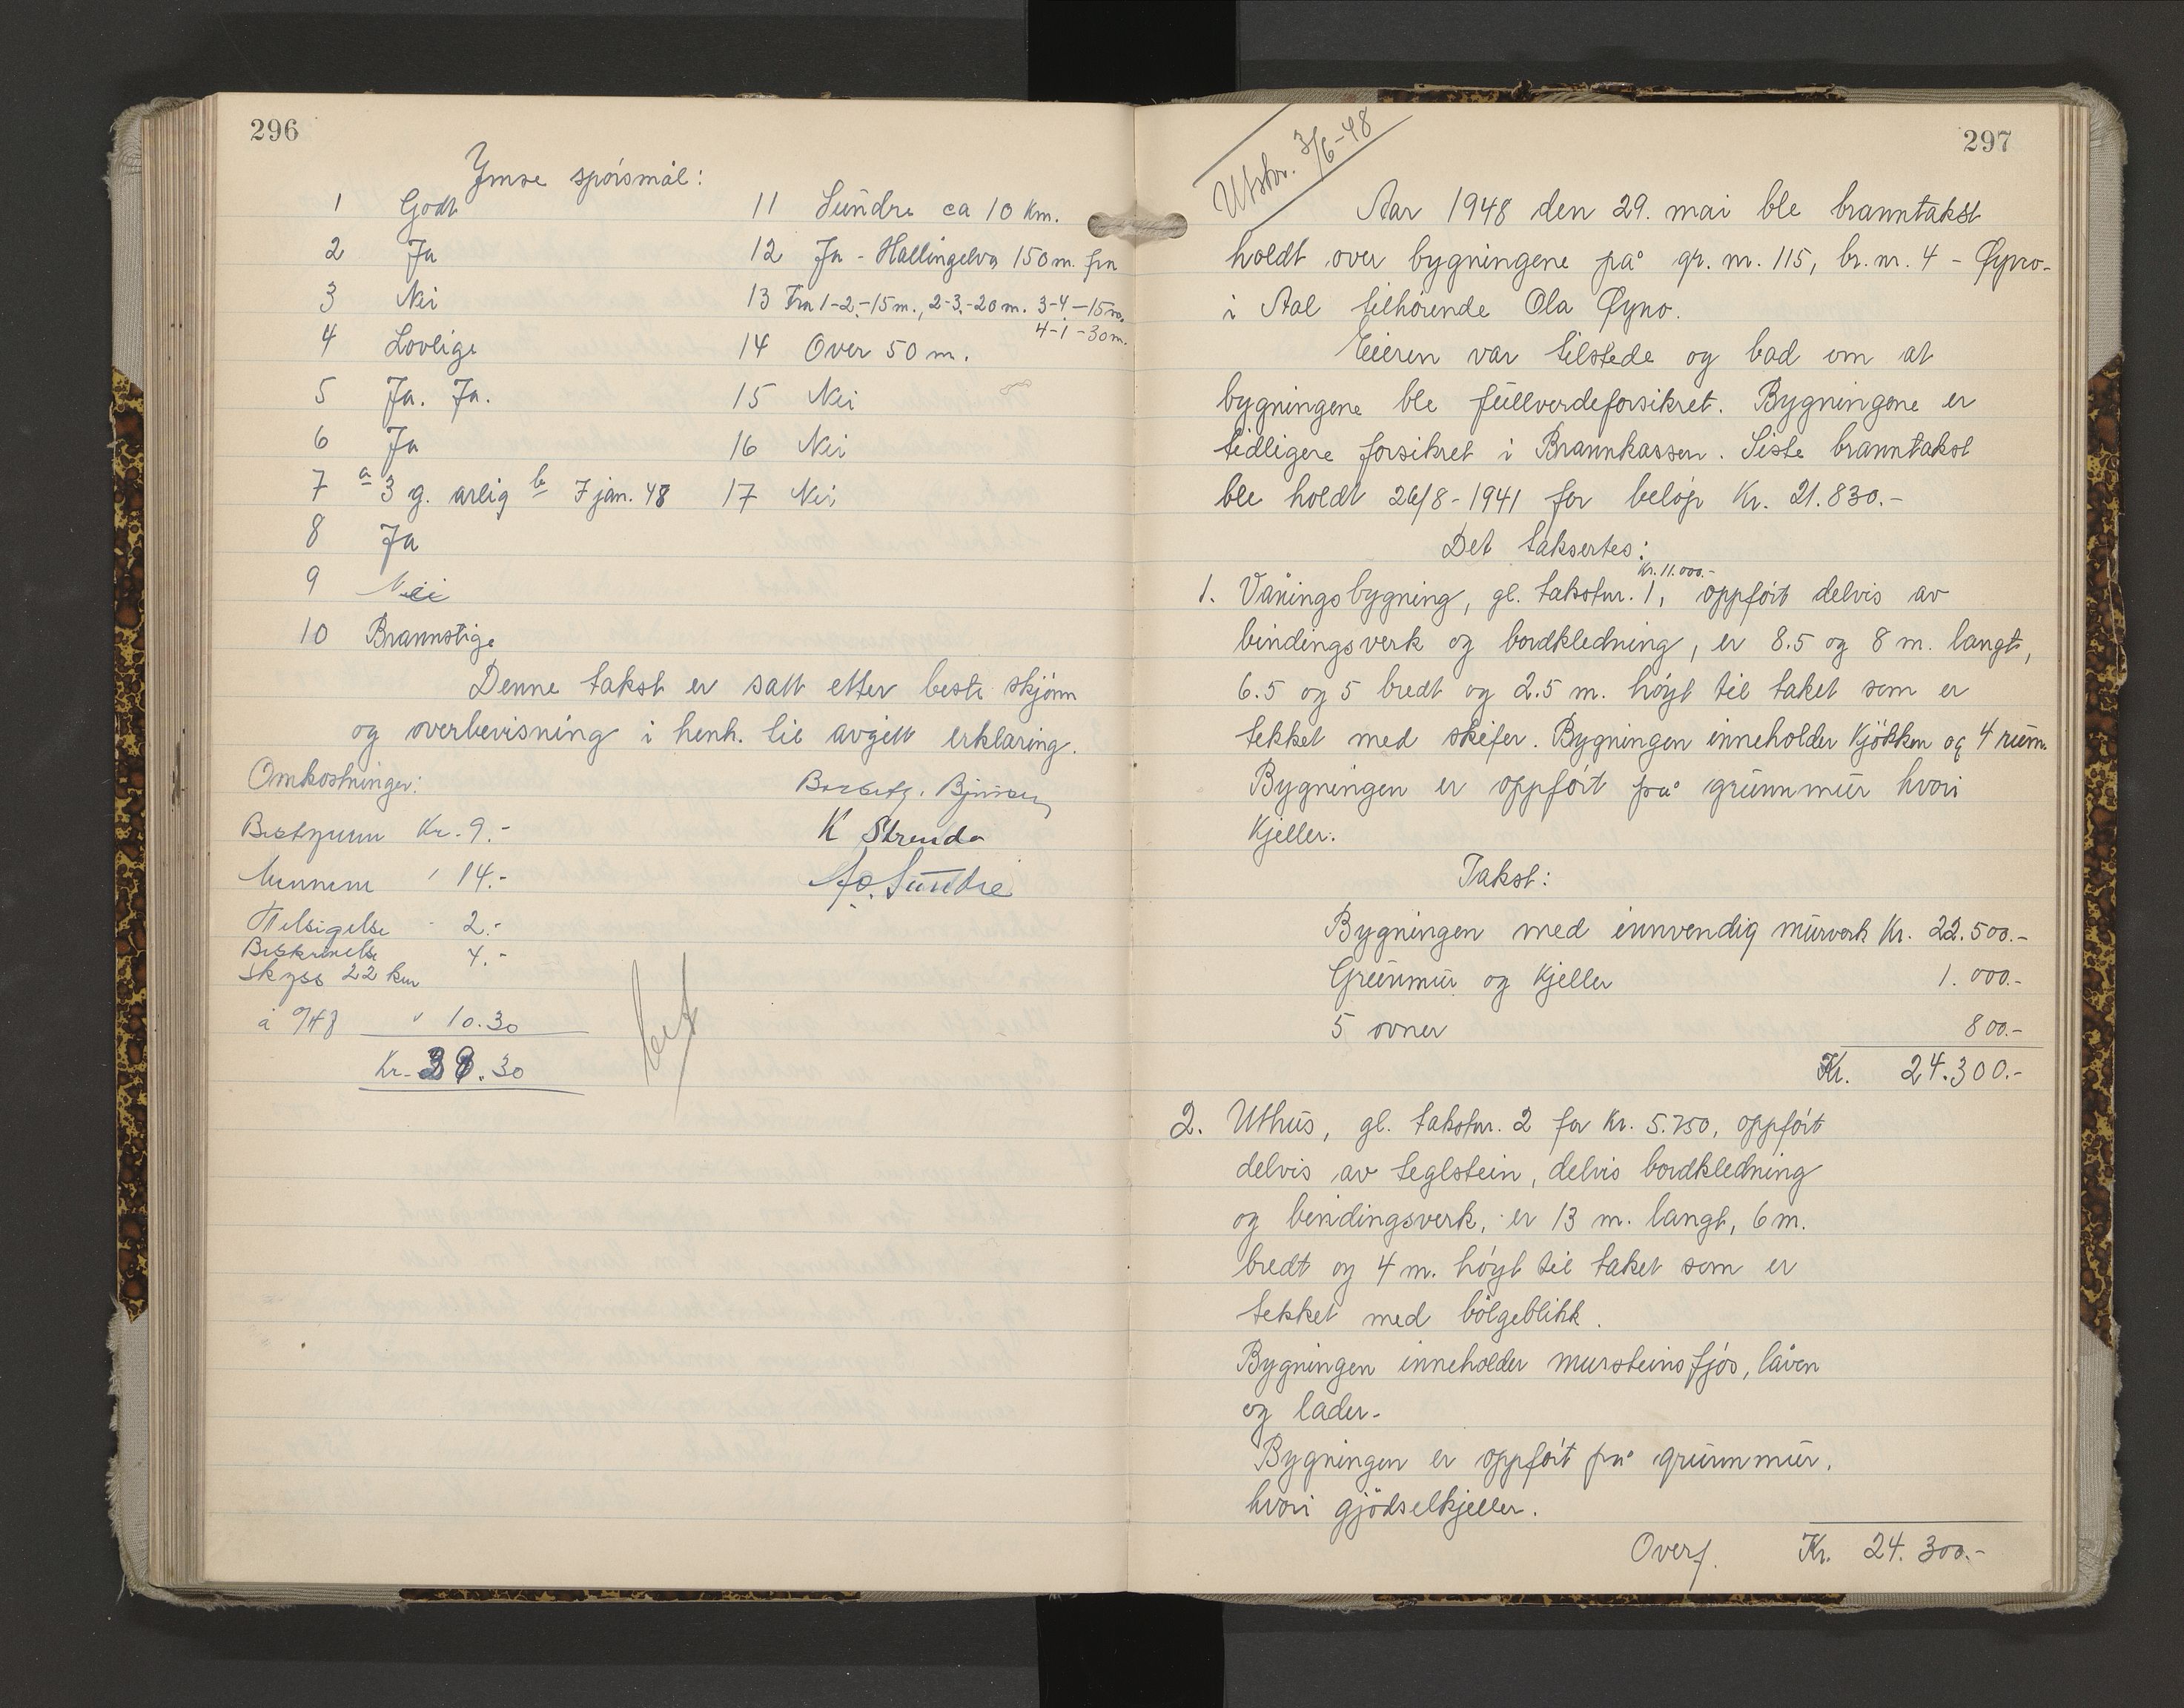 296
Ymse spörsmål:
1 Godt
2 Ja
3 Nei
4 Lovlige
5 Ja. Ja.
6 Ja
7 a 3 g. arlig b 7 jan. 48
8 Ja
9 Nei
10 Brannstige
11 Sundre ca 10 Km.
12 Ja - Hallingelva 150 m. fra
13 Fra 1-2.-15 m., 2-3.-20 m. 3-4.-15 m.
4-1-30 m.
14 Over 50 m.
15 Nei
16 Nei
17 Nei
Denne takst er satt etter beste skjönn
og overbevisning i henh. til avgitt erklaring.
Omkostninger:
Kr. 9.-
Mennene " 14.-
Tilsigelse - 2.-
Beskrivelse 4.-
Skyss 22 km
à " 10.30
Kr. 39.30
K Strenda
Sundre
297
Utskr. 3/6-48
Aar 1948 den 29. mai ble branntakst
holdt over bygningene på gr. nr. 115, br. nr. 4 - Öyno-
i Aal tilhörende Ola Öyno.
Eieren var tilstede og bad om at
bygningene ble fullverdeforsikret. Bygningene er
tidligere forsikret i Brannkassen. Siste branntakst
ble holdt 26/8-1941 for belöp Kr. 21.830.-
Det taksertes:
Kr. 11.000.-
1. Våningsbygning, gl. takstnr. 1, oppfört delvis av
bindingsverk og bordkledning, er 8.5 og 8 m. langt,
6.5 og 5 bredt og 2.5 m. höyt til taket som er
tekket med skifer. Bygningen inneholder Kjökken og 4 rum.
Bygningen er oppfört på grunnmur hvori
Kjeller.
Takst:
Bygningen med innvendig murverk Kr. 22.500.-
Grunmur og Kjeller 1.000.-
5 ovner 800.-
Kr. 24.300.-
2. Uthus, gl. takstnr. 2 for Kr. 5.750, oppfört
delvis av teglstein, delvis bordkledning
og bindingsverk, er 13 m. langt, 6 m.
bredt og 4 m. höyt til taket som er
tekket med bölgeblikk.
Bygningen inneholder mursteinsfjös, låven
og lader.
Bygningen er oppfört på grunnmur,
hvori gjödselkjeller.
Overf. Kr. 24.300.-